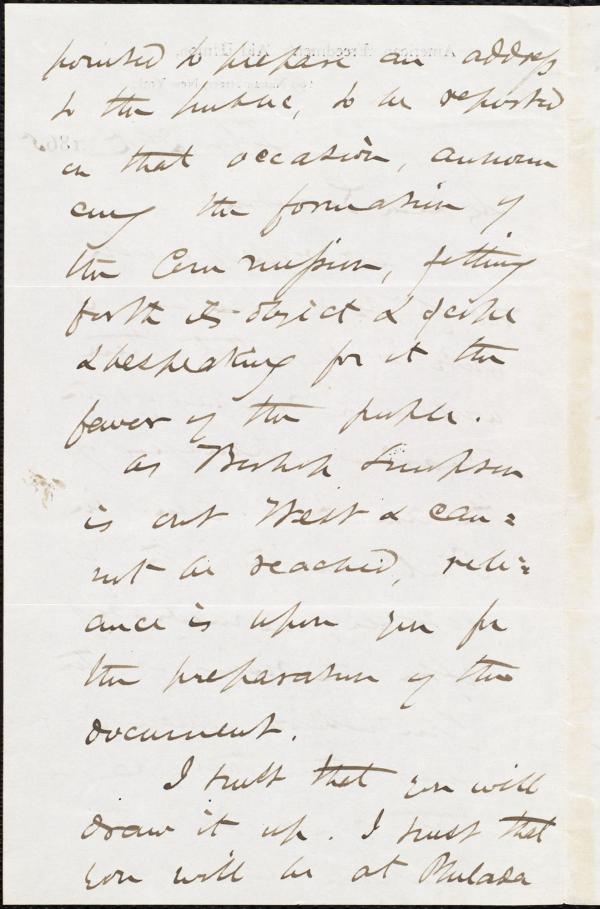 pointed to prepare an address
to the public, to be reported
on that occasion, announ
cing the formation of
the Commission, setting
forth its object & scope
& bespeaking for it the
favor of the public.
As Bishop Simpson
is out West & can=
not be reached, reli=
ance is upon you for
the preparation of the
document.
I trust that you will
draw it up. I trust that
you will be at Philada